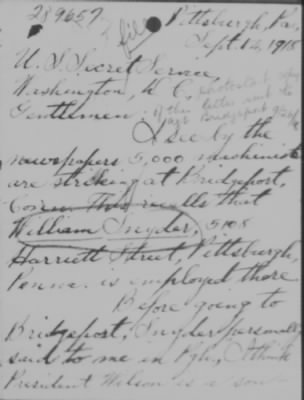 289657
file
Pittsburgh, Pa,
Sept. 12, 1918
U. S. Secret Service,
Washington, D. C.
Gentlemen.
photostat
of this letter sent to
Bridgeport
I see by the
newspapers 5,000 machinists
are striking at Bridgeport,
Conn. This recalls that
William Snyder, 5108
Harriett Street, Pittsburgh,
Penna. is employed there.
Before going to
Bridgeport, Snyder personally
said to me in Pgh, I think
President Wilson is a son